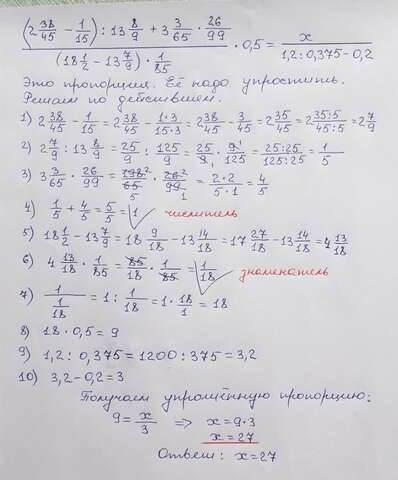 (2 38/45 - 1/15) : 13 8/9 + 3 3/65 · 26/99 / (18 1/2 - 13 7/9) · 1/85 · 0,5 = x / 1,2 : 0,375 - 0,2
Это пропорция. Её надо упростить.
Решаем по действиям.
1) 2 38/45 - 1/15 = 2 38/45 - 1·3/15·3 = 2 38/45 - 3/45 = 2 35/45 = 2 35:5/45:5 = 2 7/9
2) 2 7/9 : 13 8/9 = 25/9 : 125/9 = 25/9 · 9/125 = 25:25/125:25 = 1/5
3) 3 3/65 · 26/99 = 198 2/65 5 · 26 2/99 1 = 2·2/5·1 = 4/5
4) 1/5 + 4/5 = 5/5 = 1 числитель
5) 18 1/2 - 13 7/9 = 18 9/18 - 13 14/18 = 17 27/18 - 13 14/18 = 4 13/18
6) 4 13/18 · 1/85 = 85/18 · 1/85 = 1/18 знаменатель
7) 1 / 1/18 = 1 : 1/18 = 1 · 18/1 = 18
8) 18 · 0,5 = 9
9) 1,2 : 0,375 = 1200 : 375 = 3,2
10) 3,2 - 0,2 = 3
Получаем упрощённую пропорцию:
9 = x/3 ⇒ x = 9·3
x = 27
Ответ: x = 27